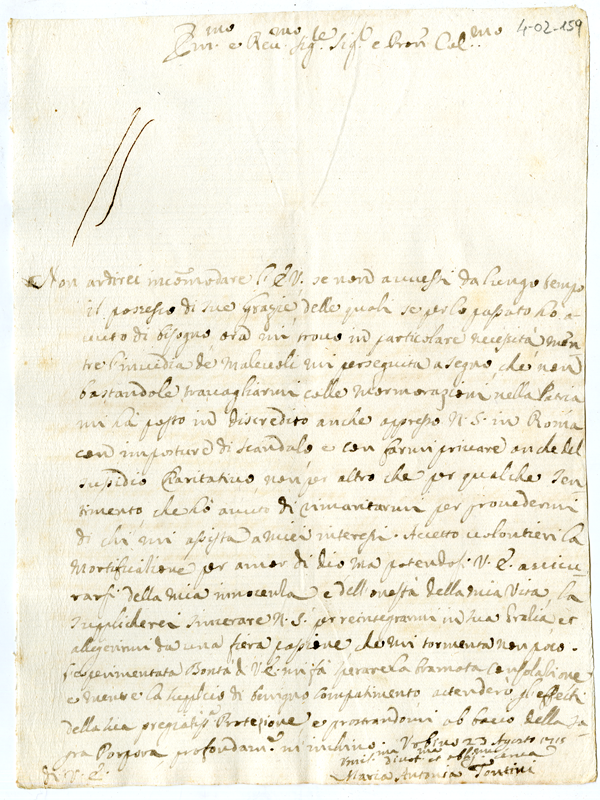 4-02-159
Em.mo e Rev.mo Sig.re Sig.r e Pron Col.mo
Non ardirei incommodare l'E.V. se non avessi da lungo tempo
il possesso di sue grazie delle quali se per lo passato hò a-
vuto di bisogno ora mi trovo in particolare necessità men-
tre l'invidia de Malevoli mi perseguita a segno, che non
bastandole travagliarmi colle mormorazioni nella Patria
mi hà posto in discredito anche appresso N.S. in Roma
con imposture di scandalo e con farmi privare anche del
sussidio Charitativo non per altro che per qualche sen-
timento, che hò avuto di rimaritarmi per provedermi
di chi mi assista a miei interessi. Accetto volontieri la
Mortificatione per amor di dio ma potendosi V.E. assicu-
rarsi della mia innocenza e dell'onestà della mia Vita, la
supplicherei sincerare N.S. per reintegrarmi in sua Gratia et
allegerirmi da una fiera passione che mi tormenta non poco.
L'esperimentata Bontà di V.E. mi fà sperare la bramata consolatione
e mentre la supplico di benigno compatimento attenderò gl'effetti
della sua pregiatiss.a Protezione e prostrandomi al bacio della Sa-
gra Porpora profondam.e m'inchino. Urbino 23 Agosto 1715
di V.E.
Umil.ma Divot.ma et obblig.ma
Maria Antonia Fontini